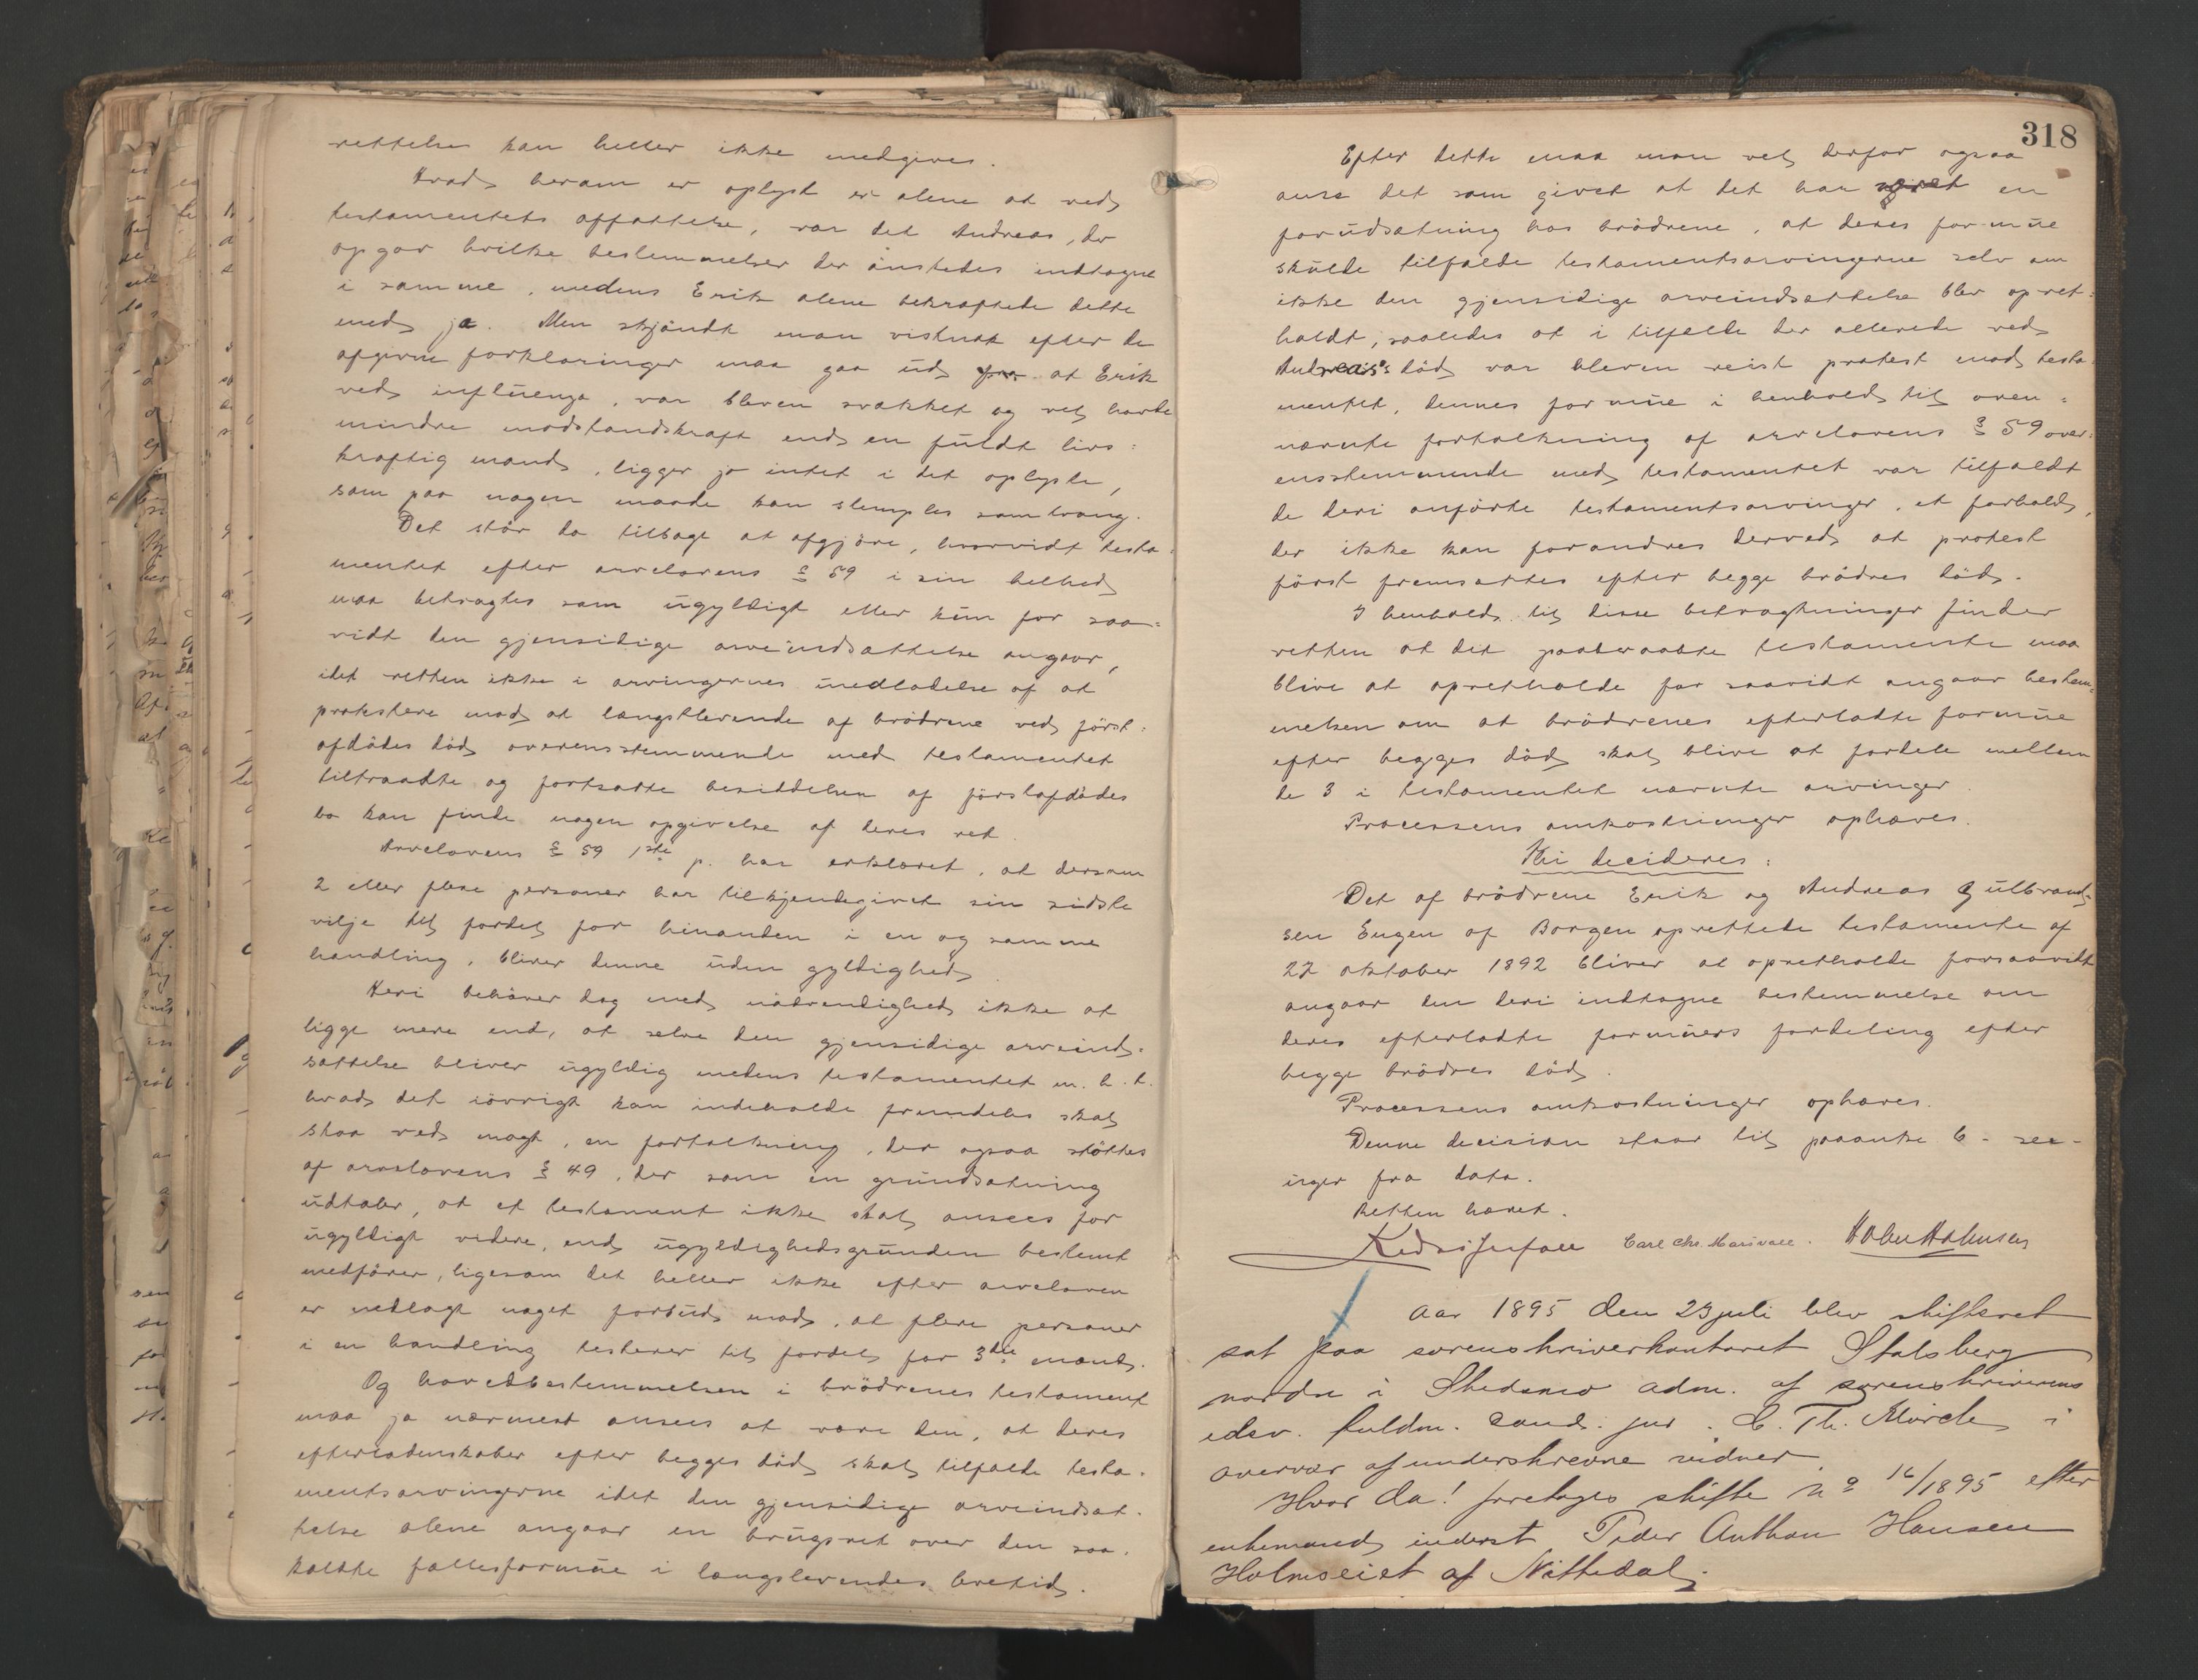 rettelse kan heller ikke medgives.
Hvad herom er oplyst er alene at ved
testamentets affattelse, var det Andreas, der
opgav hvilke bestemmelser der ønskedes indtagne
i samme, medens Erik alene bekræftede dette
med ja. Men skjöndt man vistnok efter de
afgivne forklaringer maa gaa ud fra at Erik
ved influenza, var bleven svækket og vel havde
mindre modstandskraft end en fuldt livs=
kraftig mand, ligger jo intet i det oplyste,
som paa nogen maade kan stemples som tvang.
Det står da tilbage at afgjöre, hvorvidt testa=
mentet efter arvelovens § 59 i sin helhed
maa betragtes som ugyldigt eller kun for saa=
vidt den gjensidige arveindsættelse angaar,
idet retten ikke i arvingernes undladelse af at
protestere mod at længstlevende af brödrene ved först=
afdödes död overensstemmende med testamentet
tiltraadte og fortsatte besiddelsen af förstafdödes
bo kan finde nogen opgivelse af deres ret.
Arvelovens § 59 1ste p. har erklæret, at dersom
2 eller flere personer har tilkjendegivet sin sidste
vilje til fordel for hinanden i en og samme
handling, bliver denne uden gyldighed
Heri behöver dog med nödvendighed ikke at
ligge mere end, at selve den gjensidige arveind=
sættelse bliver ugyldig medens testamentet m. h. t.
hvad det iövrigt kan indeholde fremdeles skal
staa ved magt, en fortolkning, der ogsaa stöttes
af arvelovens § 49, der som en grundsætning
udtaler, at et testament ikke skal ansees for
ugyldigt videre, end ugyldighedsgrunden bestemt
medförer, ligesom det heller ikke efter arveloven
er nedlagt noget forbud mod, at flere personer
i en handling testerer til fordel for 3die mand.
Og hovedbestemmelsen i brödrenes testament
maa jo nærmest ansees at være den, at deres
efterladenskaber efter begges död skal tilfalde testa=
mentsarvingerne idet den gjensidige arveindsæt=
telse alene angaar en brugsret over den saa=
kaldte fællesformue i længstlevendes levetid.
318
Efter dette maa man vel derfor ogsaa
anse det som givet at det har været en
forudsætning hos brödrene, at deres formue
skulde tilfalde testamentsarvingerne selv om
ikke den gjensidige arveindsættelse blev opret=
holdt, saaledes at i tilfælde der allerede ved
Andreas's död var bleven reist protest mod testa=
mentet, dennes formue i henhold til oven=
nævnte fortolkning af arvelovens § 59 over=
ensstemmende med testamentet var tilfaldt
de deri anförte testamentsarvinger, et forhold,
der ikke kan forandres derved at protest
först fremsættes efter begge brödres död.
I henhold til disse betragtninger finder
retten at det paaberaabte testamente maa
blive at opretholde for saavidt angaar bestem=
melsen om at brödrenes efterladte formue
efter begges död skal blive at fordele mellem
de 3 i testamentet nævnte arvinger.
Processens omkostninger ophæves.
Thi decideres:
Det af brödrene Erik og Andreas Gulbrand=
sen Engen af Borgen oprettede testamente af
22 oktober 1892 bliver at opretholde forsaavidt
angaar den deri indtagne bestemmelse om
deres efterladte formuers fordeling efter
begge brödres död.
Processens omkostninger ophæves.
Denne decision staar til paaanke 6 =
uger fra dato.
Retten hævet.
Carl Chr.
Aar 1895 den 23 juli blev skifteret
sat paa sorenskriverkontoret Stalsberg
nordre i Skedsmo adm. af sorenskriverens
edsv. fuldm. cand. jur. C. Th. Mørch i
overvær af underskrevne vidner
Hvor da! foretoges skifte no 16/1895 efter
enkemand inderst Peder Anthon Hansen
Holmseiet af Nittedal.